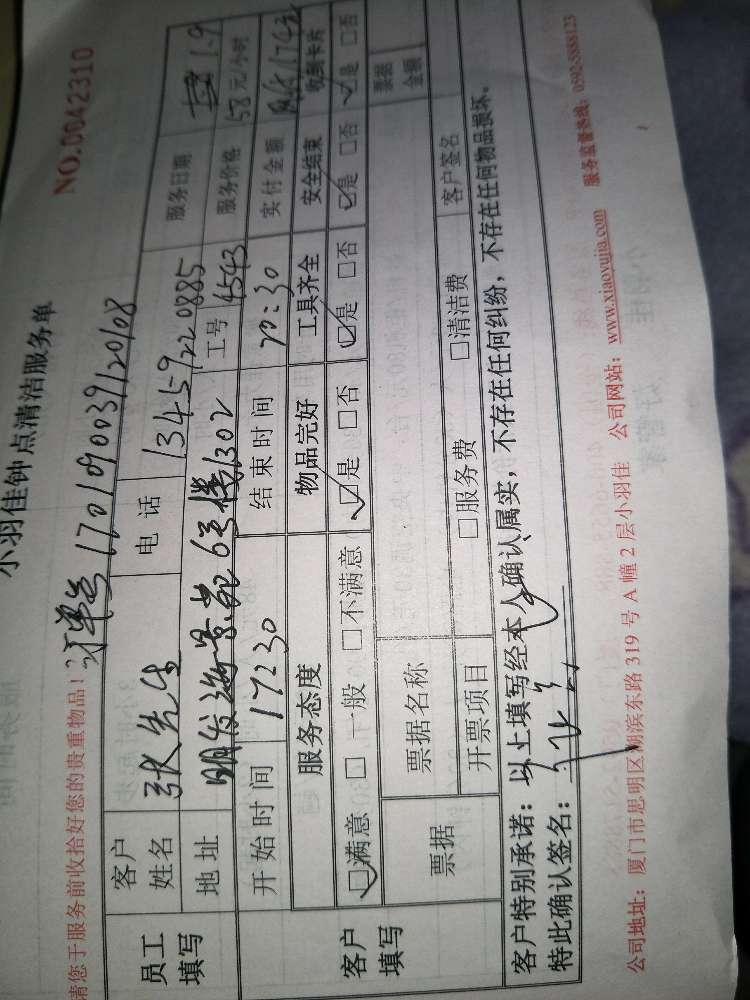 小羽佳钟点清洁服务单
NO.0042310
请您于服务前收拾好您的贵重物品！
订单号 1701090039120108
员工填写
客户姓名 张先生 电话 13459220885 服务日期 1.9
地址 明发海景苑6号楼1302 工号 4543 服务价格 58元/小时
客户填写
开始时间 17:30 结束时间 20:30 实付金额 174元
服务态度 物品完好 工具齐全 安全结束 收到卡片
☑满意 □一般 □不满意 ☑是 □否 ☑是 □否 ☑是 □否 ☑是 □否
票据 票据名称 票据金额
开票项目 □服务费 □清洁费 客户签名
客户特别承诺：以上填写经本人确认属实，不存在任何纠纷，不存在任何物品损坏。
特此确认签名：
公司地址：厦门市思明区湖滨东路319号A幢2层小羽佳 公司网站：www.xiaoyujia.com 服务监督热线：0592-5888123